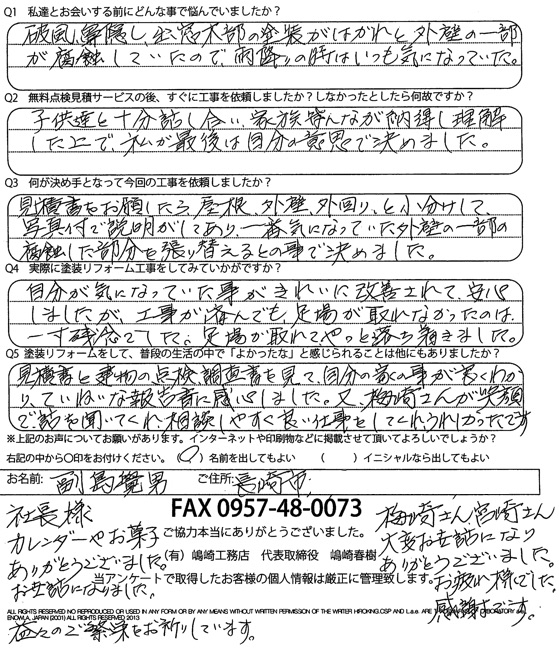 Q1 私達とお会いする前にどんな事で悩んでいましたか？
破風、鼻隠し、出窓木部の塗装がはがれと外壁の一部
が腐蝕していたので、雨降りの時はいつも気になっていた。
Q2 無料点検見積サービスの後、すぐに工事を依頼しましたか？しなかったとしたら何故ですか？
子供達と十分話し合い、家族皆んなが納得し理解
した上で、私が最後は自分の意思で決めました。
Q3 何が決め手となって今回の工事を依頼しましたか？
見積書をお願したら、屋根、外壁、外回り、と小分けして、
写真付で説明がしてあり、一番気になっていた外壁の一部の
腐蝕した部分を張り替えるとの事で決めました。
Q4 実際に塗装リフォーム工事をしてみていかがですか？
自分が気になっていた事がきれいに改善されて、安心
しましたが、工事が済んでも、足場が取れなかったのは、
一寸残念でした。足場が取れてやっと落ち着きました。
Q5 塗装リフォームをして、普段の生活の中で「よかったな」と感じられることは他にもありましたか？
見積書と建物の点検、調査書を見て、自分の家の事が良くわか
り、ていねいな報告書に感心しました。又、梅崎さんが笑顔
で話を聞いてくれ、相談しやすく良い仕事をしてくれうれしかったです
※上記のお声についてお願いがあります。インターネットや印刷物などに掲載させて頂いてよろしいでしょうか？
右記の中から○印をお付けください。（○）名前を出してもよい （ ）イニシャルなら出してもよい
お名前: 副島 覺男 ご住所: 長崎市
FAX 0957-48-0073
社長様
カレンダーやお菓子
ありがとうございました。
お世話になりました。
益々のご繁栄をお祈りしています。
ご協力本当にありがとうございました。
（有）嶋崎工務店 代表取締役 嶋崎春樹
当アンケートで取得したお客様の個人情報は厳正に管理致します。
梅崎さん宮崎さん
大変お世話になり
ありがとうございました。
お疲れ様でした。
感謝です。
ALL RIGHTS RESERVED NO REPRODUCED OR USED IN ANY FORM OR BY ANY MEANS WITHOUT WRITTEN PERMISSION OF THE WRITER HIROKING.CSP AND L.a.e. ARE
ENOWLA, JAPAN (2001) ALL RIGHTS RESERVED 2013